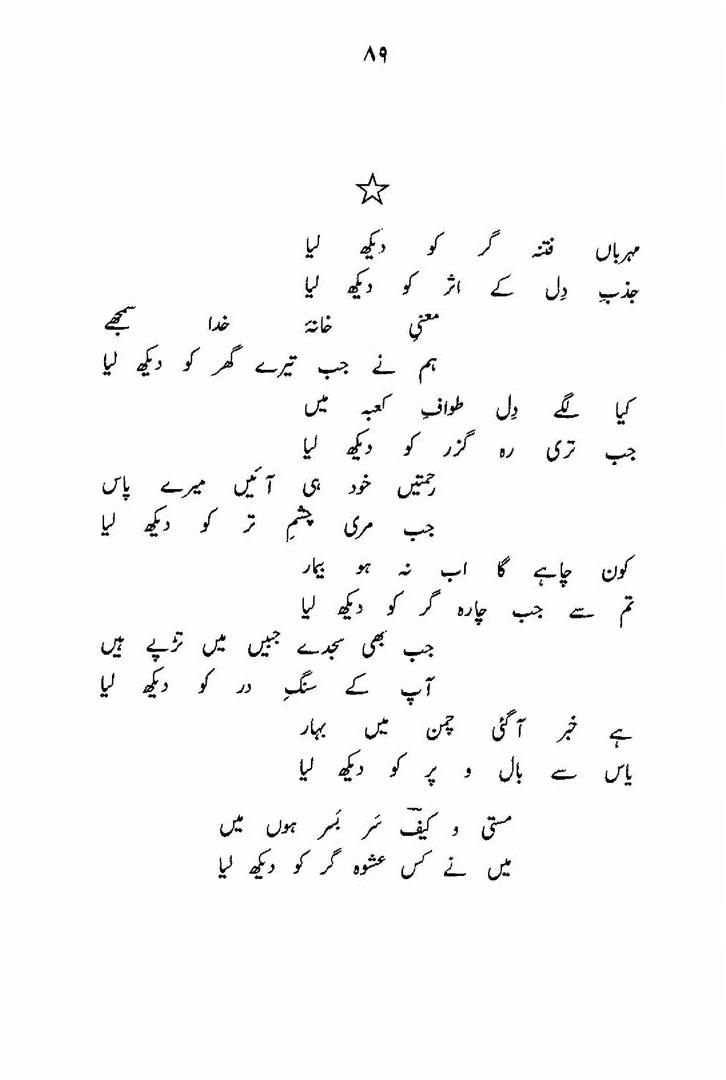 ۸۹
مہرباں فتنہ گر کو دیکھ لیا
جذبِ دِل کے اثر کو دیکھ لیا
معنیِ خانۂ خدا سمجھے
ہم نے جب تیرے گھر کو دیکھ لیا
کیا لگے دِل طوافِ کعبہ میں
جب تری رہ گزر کو دیکھ لیا
رحمتیں خود ہی آئیں میرے پاس
جب مری چشمِ تر کو دیکھ لیا
کون چاہے گا اب نہ ہو بیمار
تم سے جب چارہ گر کو دیکھ لیا
جب بھی سجدے جبیں میں تڑپے ہیں
آپ کے سنگِ در کو دیکھ لیا
ہے خبر آگئی چمن میں بہار
یاس سے بال و پر کو دیکھ لیا
مستی و کیفؔ سَر بَسر ہوں میں
میں نے کس عشوہ گر کو دیکھ لیا